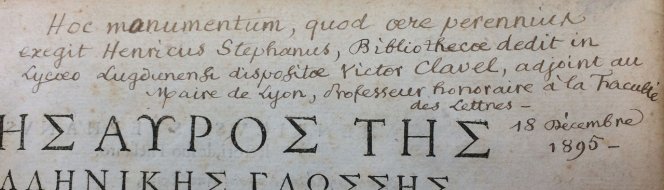 Hoc manumentum, quod œre perennius
exegit Henricus Stephanus, Bibliothecœ dedit in
Lycœo Lugdunensi dispositœ Victor Clavel, adjoint au
Maire de Lyon, Professeur honoraire à la Faculté
des Lettres –
18 Décembre
1895 –
ΗΣΑΥΡΟΣ ΤΗΣ
ΛΛΗΝΙΚΗΣ ΓΛΩΣΣΗΣ